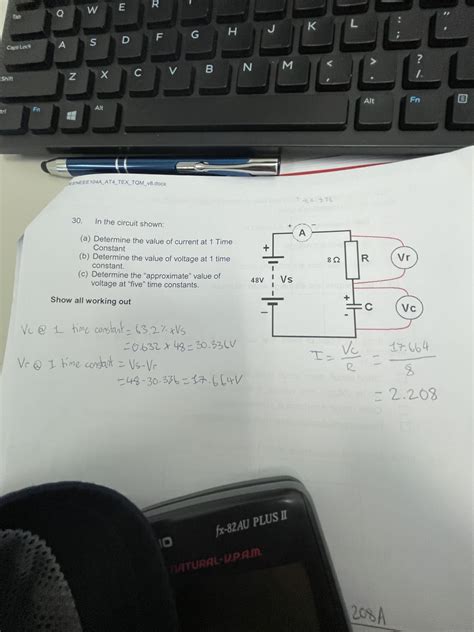 Tab
Q
W
E
R
Caps Lock
A
S
D
F
G
H
J
K
L
:
;
"
'
Shift
Z
X
C
V
B
N
M
<
,
>
.
?
/
Fn
Alt
Alt
Fn
30. In the circuit shown:
(a) Determine the value of current at 1 Time
Constant
(b) Determine the value of voltage at 1 time
constant.
(c) Determine the "approximate" value of
voltage at "five" time constants.
Show all working out
A
+
-
+
48V
Vs
-
8 Ω
R
Vr
+
C
Vc
Vc @ 1 time constant = 63.2% × Vs
= 0.632 × 48 = 30.336V
Vr @ 1 time constant = Vs - Vr
= 48 - 30.336 = 17.664V
I = Vc/R = 17.664/8
= 2.208
fx-82AU PLUS II
NATURAL-V.P.A.M.
208A